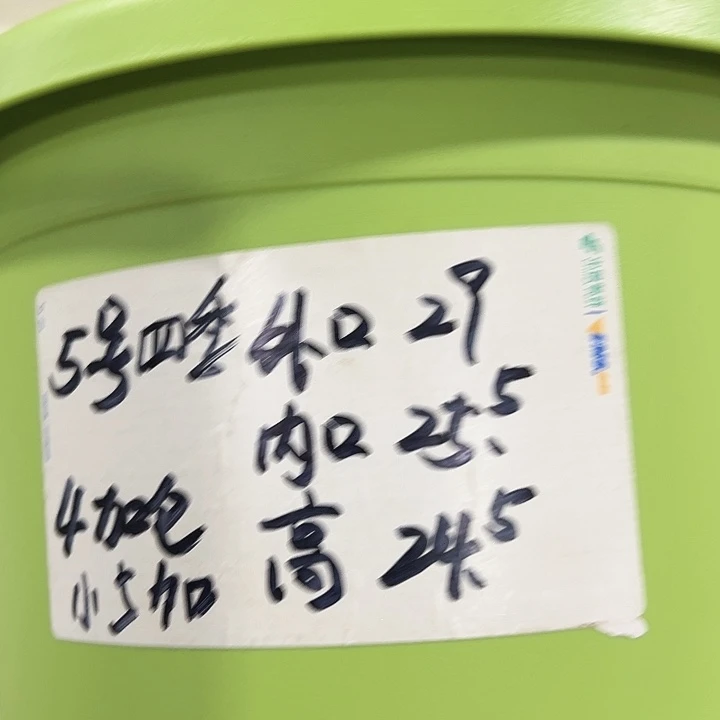 5号四季 外口 29
内口 25.5
4加仑 高 24.5
小5加